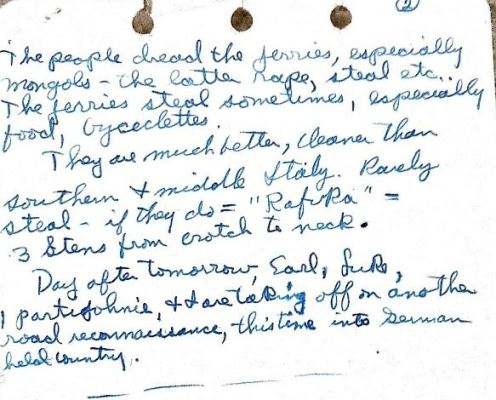 (2)
The people dread the ferries, especially
mongols - the latter rape, steal etc..
The ferries steal sometimes, especially
food, byceclettes.
They are much better, cleaner than
southern & middle Italy. Rarely
steal - if they do = "Rafika" =
3 Stens from crotch to neck.
Day after tomorrow, Earl,
1 partijohnie, & I are taking off on another
road reconnaissance, this time into German
held country.